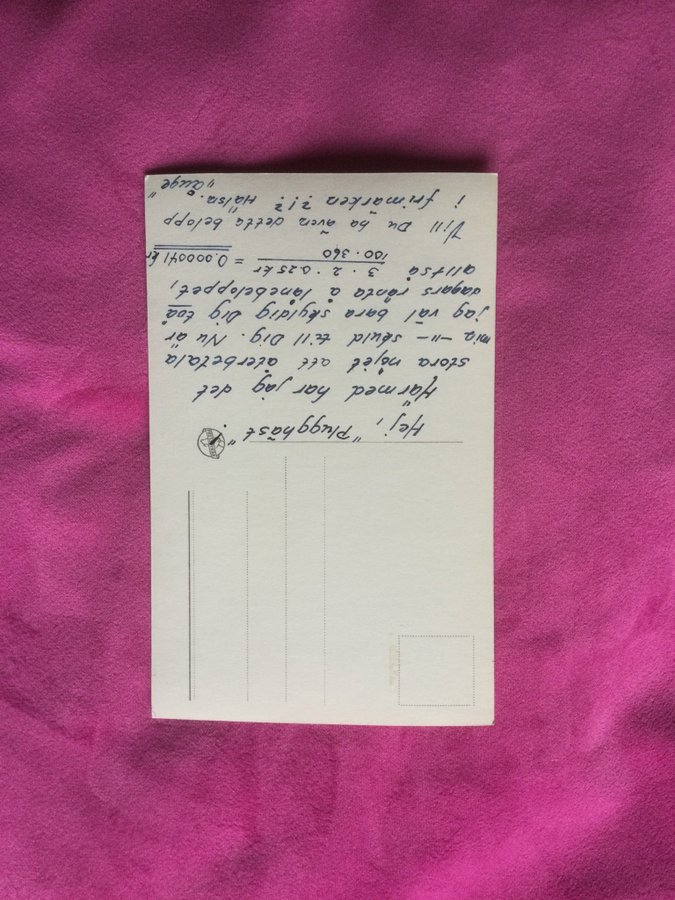 Hej, "Plugghäst"!
Härmed har jag det
stora nöjet att återbetala
min -"- skuld till Dig. Nu är
jag väl bara skyldig Dig två
dagars ränta å lånebeloppet,
alltså 3 · 2 · 0.25 kr / 100 · 360 = 0.000041 kr
Vill Du ha även detta belopp
i frimärken ?!? Hälsn.
"Åuge"